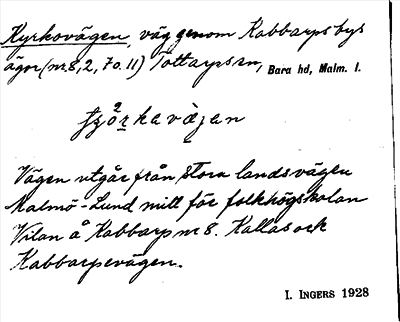 Kyrkovägen, väg genom Kabbarps bys
ägor (nr 8, 2, 7 o. 11) Tottarps sn, Bara hd, Malm. l.
Vägen utgår från stora landsvägen
Malmö-Lund mitt för folkhögskolan
Vilan å Kabbarp nr 8. Kallas ock
Kabbarpsvägen.
I. INGERS 1928